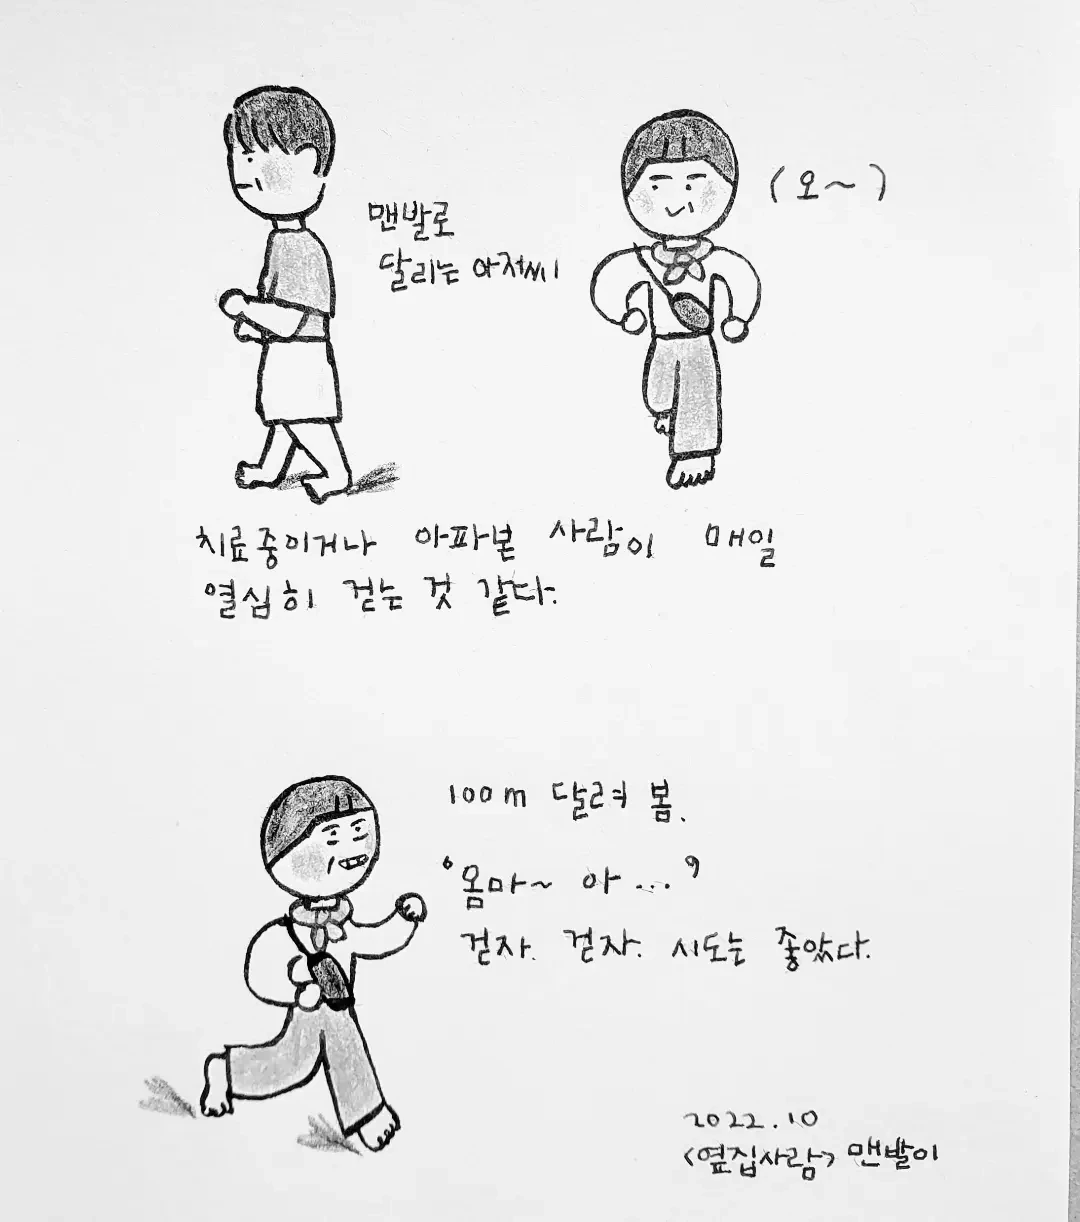 맨발로
달리는 아저씨
(오~)
치료중이거나 아파본 사람이 매일
열심히 걷는 것 같다.
100m 달려 봄.
'옴마~ 아...'
걷자. 걷자. 시도는 좋았다.
2022.10
<옆집사람> 맨발이